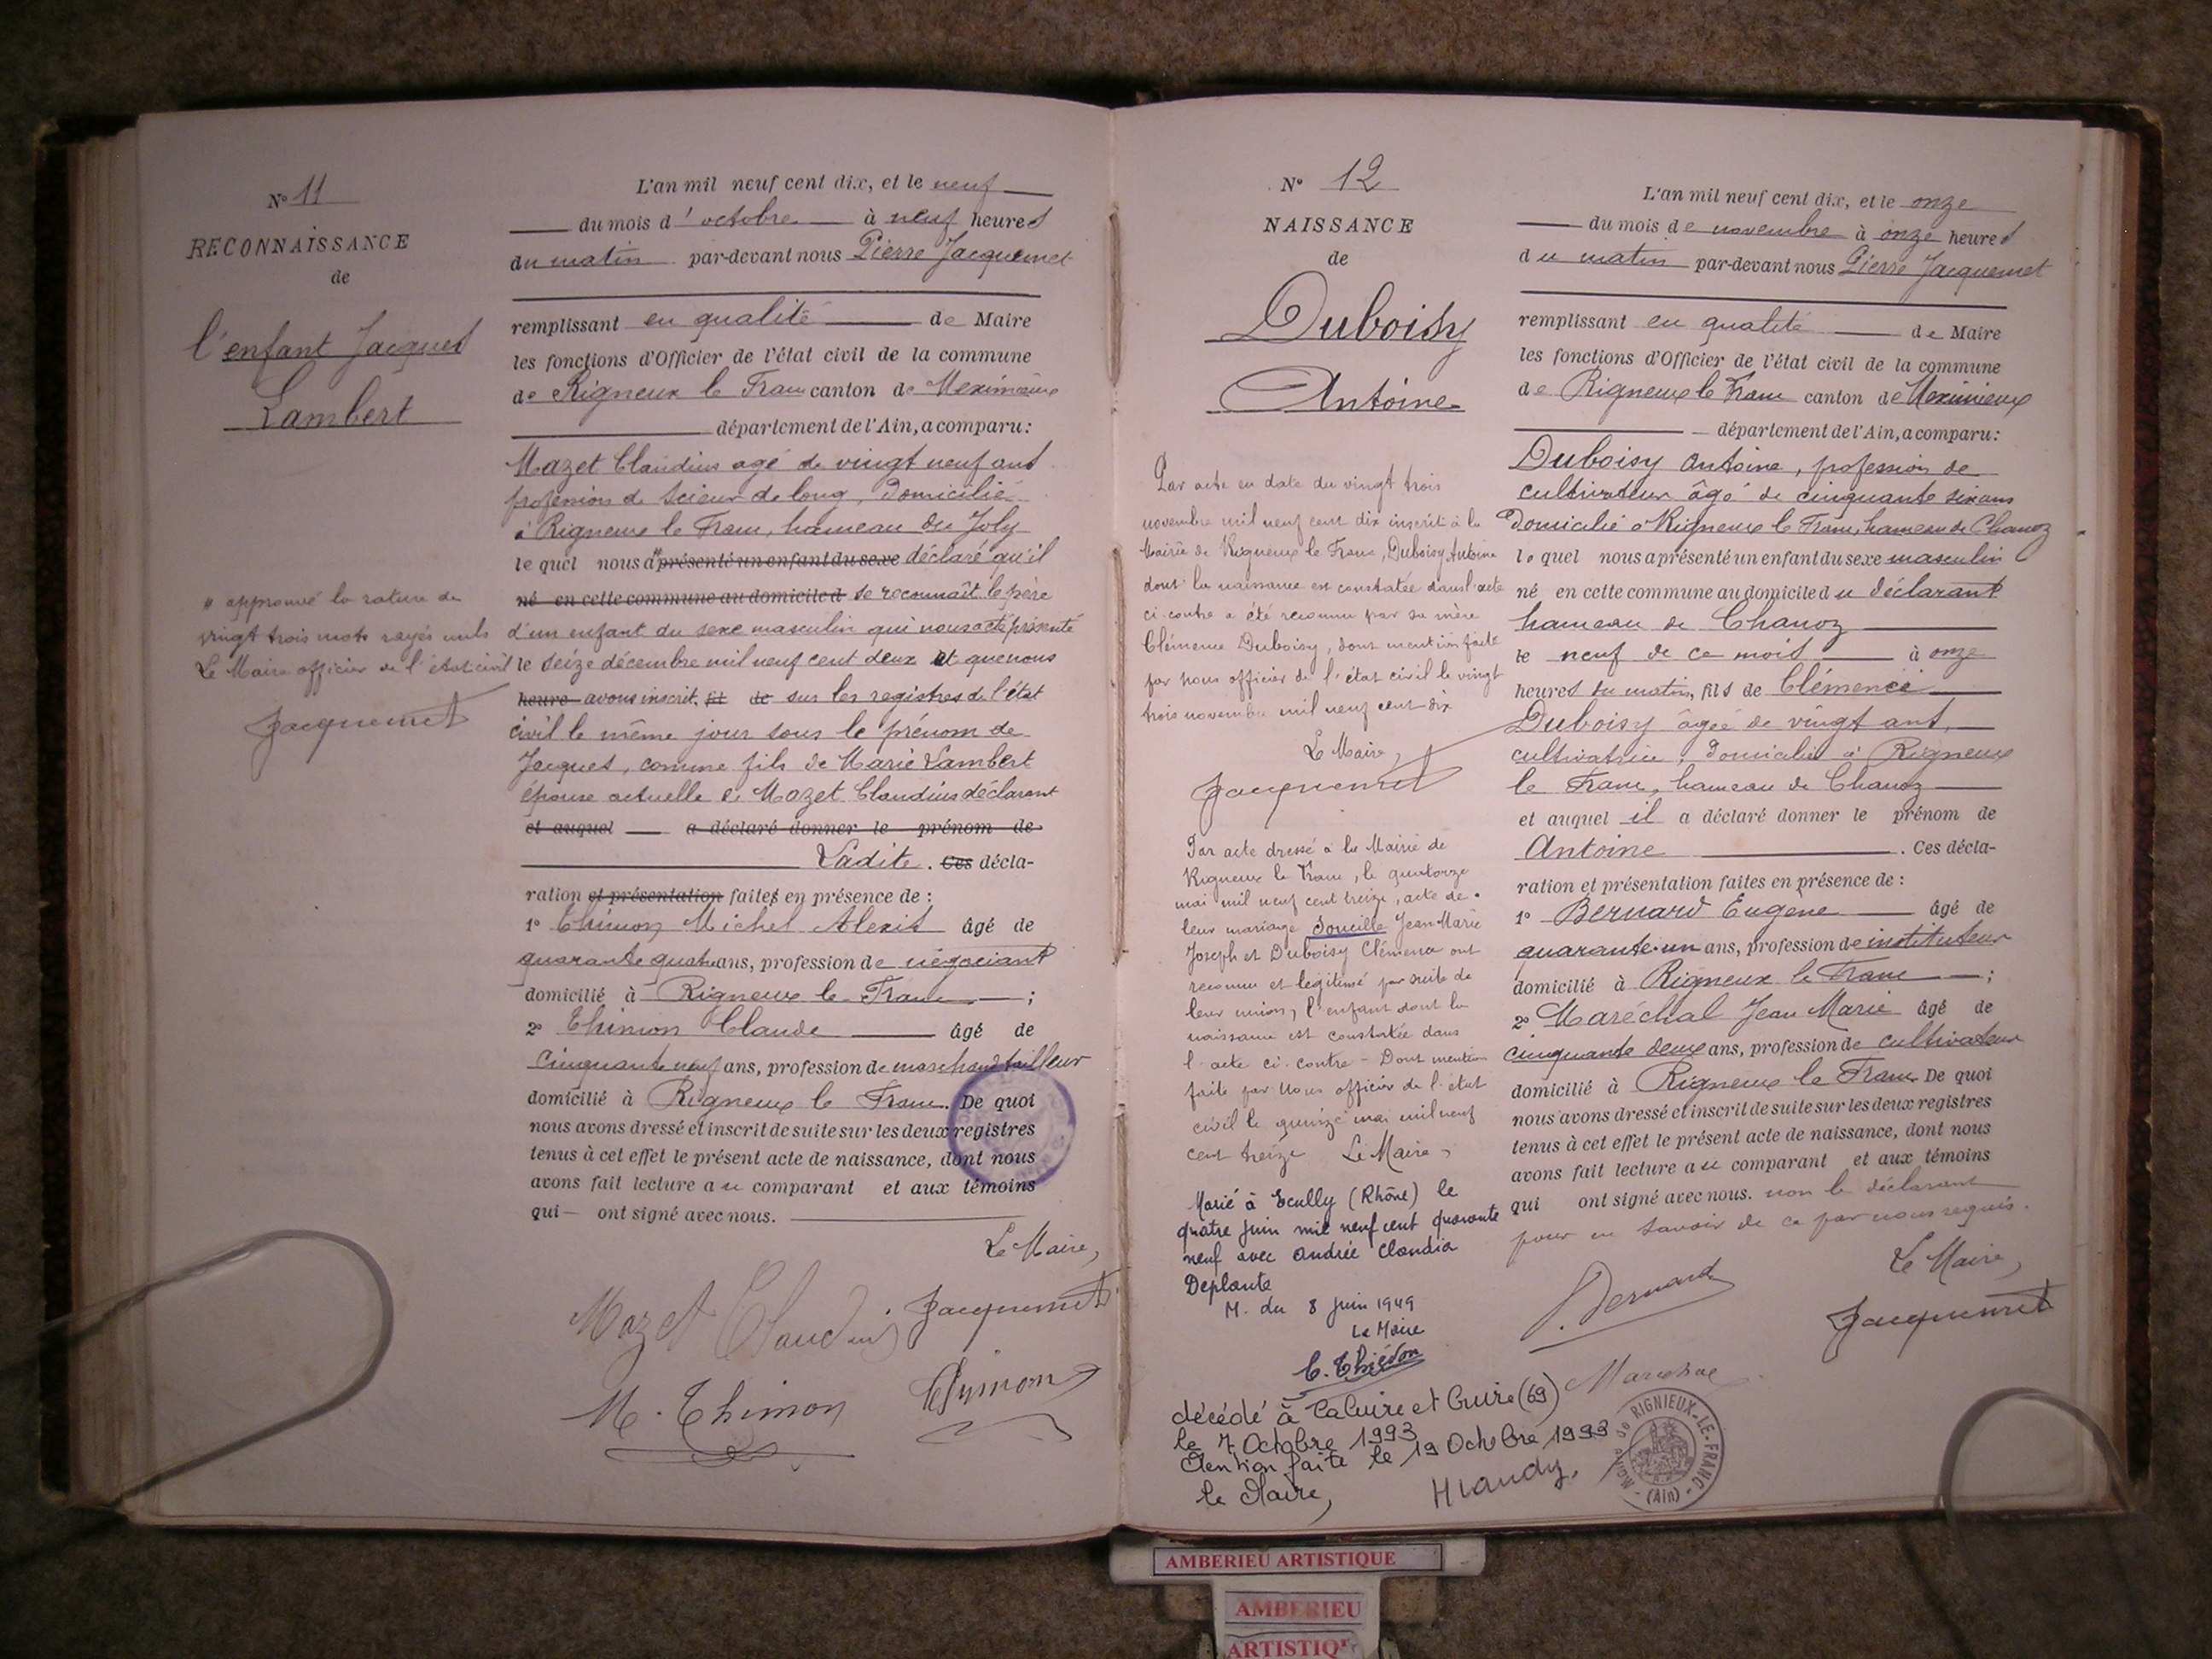 N° 11
RECONNAISSANCE
de
l'enfant Jacques
Lambert
" approuvé la rature de
vingt trois mots rayés nuls
Le Maire officier de l'état civil
Jacquemet
L'an mil neuf cent dix, et le neuf
du mois d'octobre à neuf heures
du matin par-devant nous Pierre Jacquemet
remplissant en qualité de Maire
les fonctions d'Officier de l'état civil de la commune
de Rigneux le Franc canton de Meximieux
département de l'Ain, a comparu:
Mazet Claudius agé de vingt neuf ans
profession de Scieur de long, domicilié
à Rigneux le Franc, hameau du Joly
le quel nous a " présenté un enfant du sexe déclaré qu'il
né en cette commune au domicile d se reconnaît le père
d'un enfant du sexe masculin qui nous a été présenté
le seize décembre mil neuf cent deux et que nous
heure avons inscrit, fil de sur les registres de l'état
civil le même jour sous le prénom de
Jacques, comme fils de Marie Lambert
épouse actuelle de Mazet Claudius déclarant
et auquel a déclaré donner le prénom de
Ladite. Ces décla-
ration et présentation faites en présence de :
1° Thimon Michel Alexis âgé de
quarante quatre ans, profession de négociant
domicilié à Rigneux le Franc ;
2° Thimon Claude âgé de
cinquante neuf ans, profession de marchand tailleur
domicilié à Rigneux le Franc. De quoi
nous avons dressé et inscrit de suite sur les deux registres
tenus à cet effet le présent acte de naissance, dont nous
avons fait lecture au comparant et aux témoins
qui ont signé avec nous.
Le Maire,
Mazet Claudius Jacquemet
M. Thimon Thimon
N° 12
NAISSANCE
de
Duboisy
Antoine
Par acte en date du vingt trois
novembre mil neuf cent dix inscrit à la
Mairie de Rigneux le Franc, Duboisy Antoine
dont la naissance est constatée dans l'acte
ci-contre a été reconnu par sa mère
Clémence Duboisy, dont mention faite
par nous officier de l'état civil le vingt
trois novembre mil neuf cent dix
Le Maire,
Jacquemet
Par acte dressé à la Mairie de
Rigneux le Franc, le quatorze
mai mil neuf cent treize, acte de
leur mariage Jean Marie
Joseph et Duboisy Clémence ont
reconnu et légitimé par suite de
leur union, l'enfant dont la
naissance est constatée dans
l'acte ci-contre - Dont mention
faite par Nous officier de l'état
civil le quinze mai mil neuf
cent treize Le Maire,
Marié à Ecully (Rhône) le
quatre juin mil neuf cent quarante
neuf avec Andrée Claudia
Deplante
M. du 8 juin 1949
Le Maire
C. Thiédon
décédé à Caluire et Cuire (69)
le 7 Octobre 1993
Mention faite le 19 Octobre 1993
le Maire,
L'an mil neuf cent dix, et le onze
du mois de novembre à onze heures
du matin par-devant nous Pierre Jacquemet
remplissant en qualité de Maire
les fonctions d'Officier de l'état civil de la commune
de Rigneux le Franc canton de Meximieux
département de l'Ain, a comparu:
Duboisy Antoine, profession de
cultivateur âgé de cinquante six ans
domicilié à Rigneux le Franc, hameau de Chanoz
le quel nous a présenté un enfant du sexe masculin
né en cette commune au domicile du déclarant
hameau de Chanoz
le neuf de ce mois à onze
heures du matin, fils de Clémence
Duboisy âgée de vingt ans,
cultivatrice, domiciliée à Rigneux
le Franc, hameau de Chanoz
et auquel il a déclaré donner le prénom de
Antoine . Ces décla-
ration et présentation faites en présence de :
1° Bernard Eugène âgé de
quarante-un ans, profession de instituteur
domicilié à Rigneux le Franc ;
2° Maréchal Jean Marie âgé de
cinquante deux ans, profession de cultivateur
domicilié à Rigneux le Franc De quoi
nous avons dressé et inscrit de suite sur les deux registres
tenus à cet effet le présent acte de naissance, dont nous
avons fait lecture au comparant et aux témoins
qui ont signé avec nous. non le déclarant
pour ne savoir de ce par nous requis.
Le Maire,
Bernard
Jacquemet
Maréchal
MAIRIE DE RIGNIEUX-LE-FRANC
(Ain)
AMBERIEU ARTISTIQUE
AMBERIEU